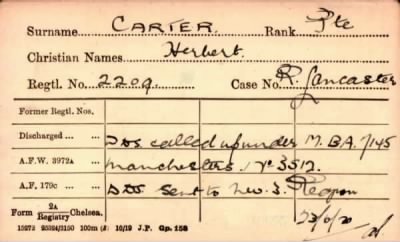 Surname CARTER. Rank Pte
Christian Names Herbert.
Regtl. No. 2209. Case No. R. Lancaster
Former Regtl. Nos.
Discharged ... called up under M.B.A. 7/45
A.F.W. 3972A ... Manchesters. 3512.
A.F. 179c ... sent to
Form 2A Registry Chelsea. 23/6/20
15272 25324/3150 100m (1) 10/19 J.P. Gp. 153